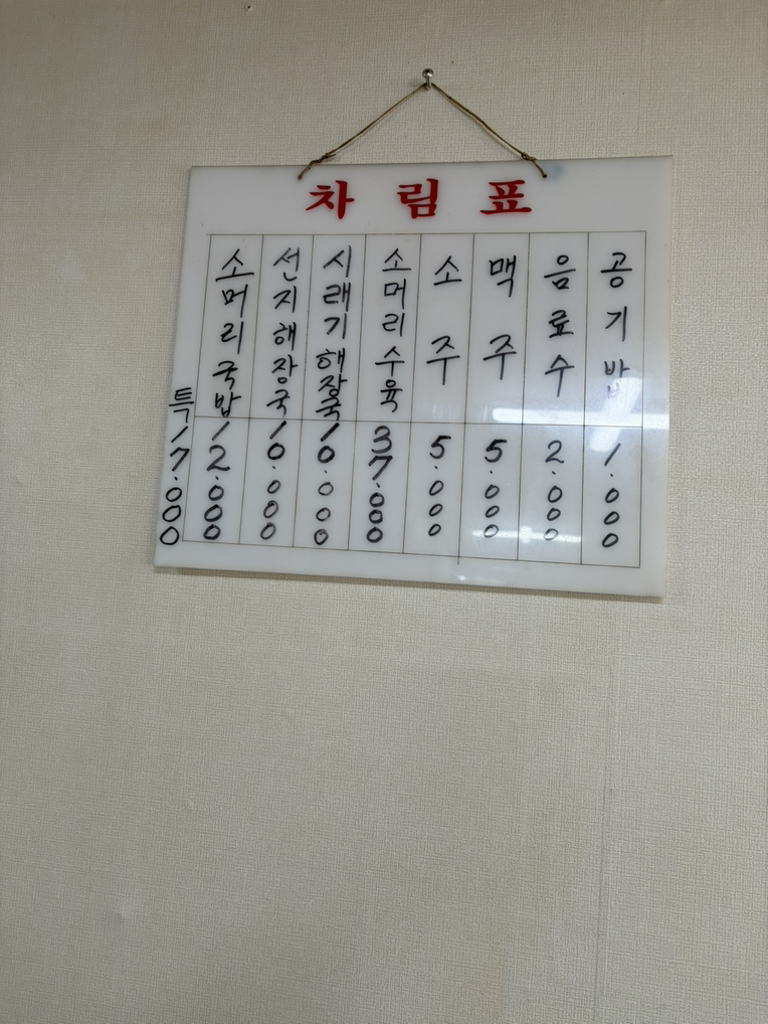 차림표
소머리국밥
12.000
특
17.000
선지해장국
10.000
시래기해장국
10.000
소머리수육
37.000
소주
5.000
맥주
5.000
음료수
2.000
공기밥
1.000